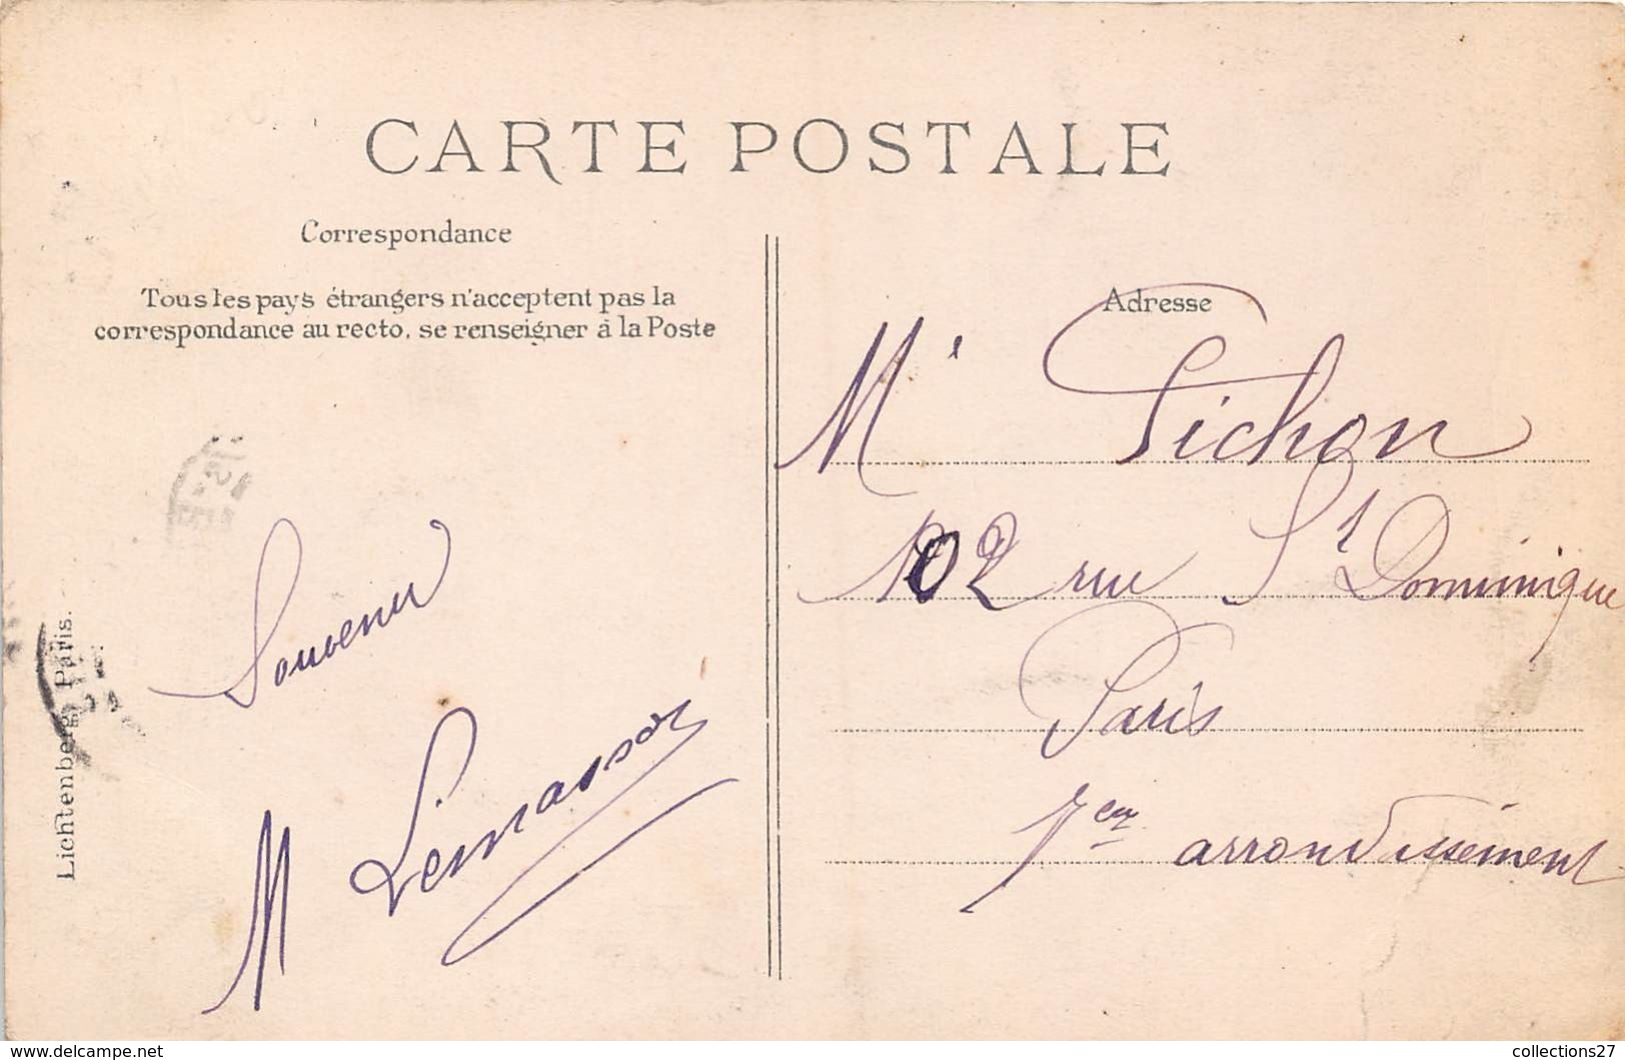 CARTE POSTALE
Correspondance
Tous les pays étrangers n'acceptent pas la
correspondance au recto, se renseigner à la Poste
Souvenir
M Lemasson
Lichtenberg, Paris.
Adresse
Mr Pichon
102 rue St Dominique
Paris
7em arrondissement
www.delcampe.net
collections27